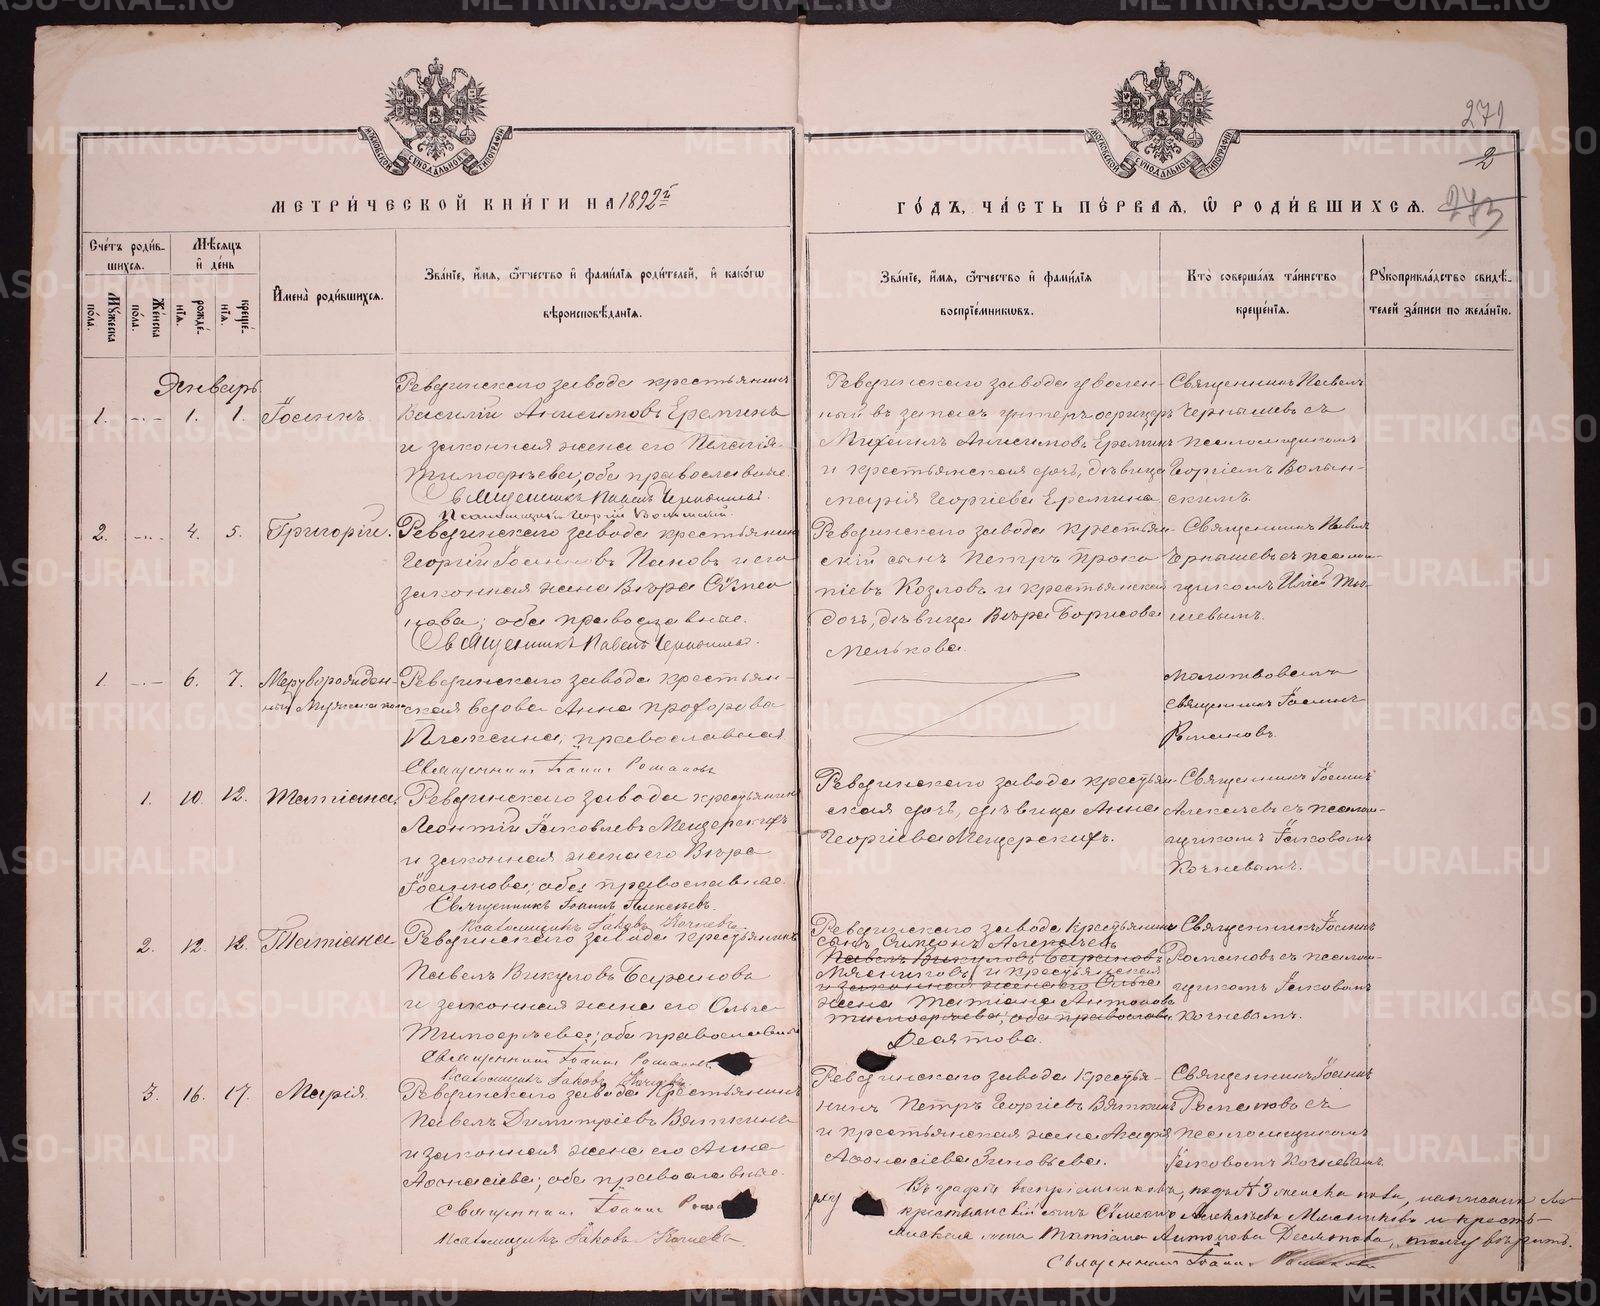 271
2
273
МОСКОВСКОЙ СУНОДАЛЬНОЙ ТИПОГРАФІИ
МОСКОВСКОЙ СУНОДАЛЬНОЙ ТИПОГРАФІИ
МЕТРИ́ЧЕСКОЙ КНИ́ГИ НА 1892й
ГО́ДЪ, ЧА́СТЬ ПЕ́РВАЯ, Ѡ РОДИ́ВШИХСЯ.
Сче́тъ роди́в-
шихся.
Мѣсяцъ
и́ де́нь
Му́жеска
по́ла.
Же́нска
по́ла.
рожде́-
нія.
креще́-
нія.
И҆мена̀ роди́вшихся.
Зва́ніе, и҆́мя, ѻ҆́тчество и҆ фами́лія роди́телей, и҆ како́гѡ
вѣроисповѣ́данія.
Зва́ніе, и҆́мя, ѻ҆́тчество и҆ фами́лія
воспріе́мникѡвъ.
Кто̀ соверша́лъ та́инство
креще́нія.
Рꙋкоприкла́дство свидѣ́-
телей за́писи по жела́нію.
Январь
1. -„- 1. 1. Іоаннъ
Ревдинскаго завода крестьянинъ
Василій Анисимовъ Ереминъ
и законная жена его Пелагія
Тимофѣева; оба православные.
Священникъ Павелъ Чернышевъ.
Псаломщикъ Георгій Волынскій.
Ревдинскаго завода уволен-
ный въ запасъ унтеръ офицеръ
Михаилъ Анисимовъ Ереминъ
и крестьянская дочь, дѣвица
Марія Георгіева Еремина
Священникъ Павелъ
Чернышевъ съ
псаломщикомъ
Георгіемъ Волын-
скимъ.
2. -„- 4. 5. Григорій.
Ревдинскаго завода крестьянинъ
Георгій Іоанновъ Пановъ и его
законная жена Вѣра Сѷмео-
нова; оба православные.
Священникъ Павелъ Чернышевъ.
Ревдинскаго завода крестьян-
скій сынъ Петръ Проко-
піевъ Козловъ и крестьянская
дочь, дѣвица Вѣра Борисова
Мелькова.
Священникъ Павелъ
Чернышевъ съ псалом-
щикомъ
шевымъ.
1. -„- 6. 7. Мертворожден-
ный мужеска пола
Ревдинскаго завода крестьян-
ская вдова Анна Прохорова
православная
Священникъ Іоаннъ Романовъ
Молитвовалъ
священникъ Іоаннъ
Романовъ.
1. 10 12. Татіана.
Ревдинскаго завода крестьянинъ
Леонтій Іаковлевъ Мещерскихъ
и законная жена его Вѣра
Іоаннова; оба православные.
Священникъ Іоаннъ Алексѣевъ.
Псаломщикъ Іаковъ Кочневъ.
Ревдинскаго завода крестьян-
ская дочь, дѣвица Анна
Георгіева Мещерскихъ.
Священникъ Іоаннъ
Алексѣевъ съ псалом-
щикомъ Іаковомъ
Кочневымъ.
2. 12. 12. Татіана
Ревдинскаго завода крестьянинъ
Павелъ Викуловъ Барановъ
и законная жена его Ольга
Тимофѣева; оба православные
Священникъ Іоаннъ Романовъ
Псаломщикъ Іаковъ Кочневъ
Ревдинскаго завода крестьянинъ
сынъ Симеонъ Алексѣевъ
Павелъ Викуловъ Барановъ
Мясниковъ и крестьянская
и законная жена его Ольга
жена Татіана Антонова
Тимофѣева; оба православн.
Десятова.
Священникъ Іоаннъ
Романовъ съ псалом-
щикомъ Іаковомъ
Кочневымъ.
3. 16. 17. Марія
Ревдинскаго завода крестьянинъ
Павелъ Димитріевъ Вяткинъ
и законная жена его Анна
Аѳонасіева; оба православные.
Священникъ Іоаннъ
Псаломщикъ Іаковъ Кочневъ
Ревдинскаго завода крестья-
нинъ Петръ Георгіевъ Вяткинъ
и крестьянская жена Агафія
Аѳонасіева Зиновьева.
Священникъ Іоаннъ
Романовъ съ
псаломщикомъ
Іаковомъ Кочневымъ.
Въ графѣ воспріемниковъ, подъ № 3 женска пола, написано
крестьянскій сынъ Сѷмеонъ Алексѣевъ Мясниковъ и кресть-
янская жена Татіана Антонова Десятова, тому вѣрить.
Священникъ Іоаннъ Романовъ
METRIKI.GASO-URAL.RU